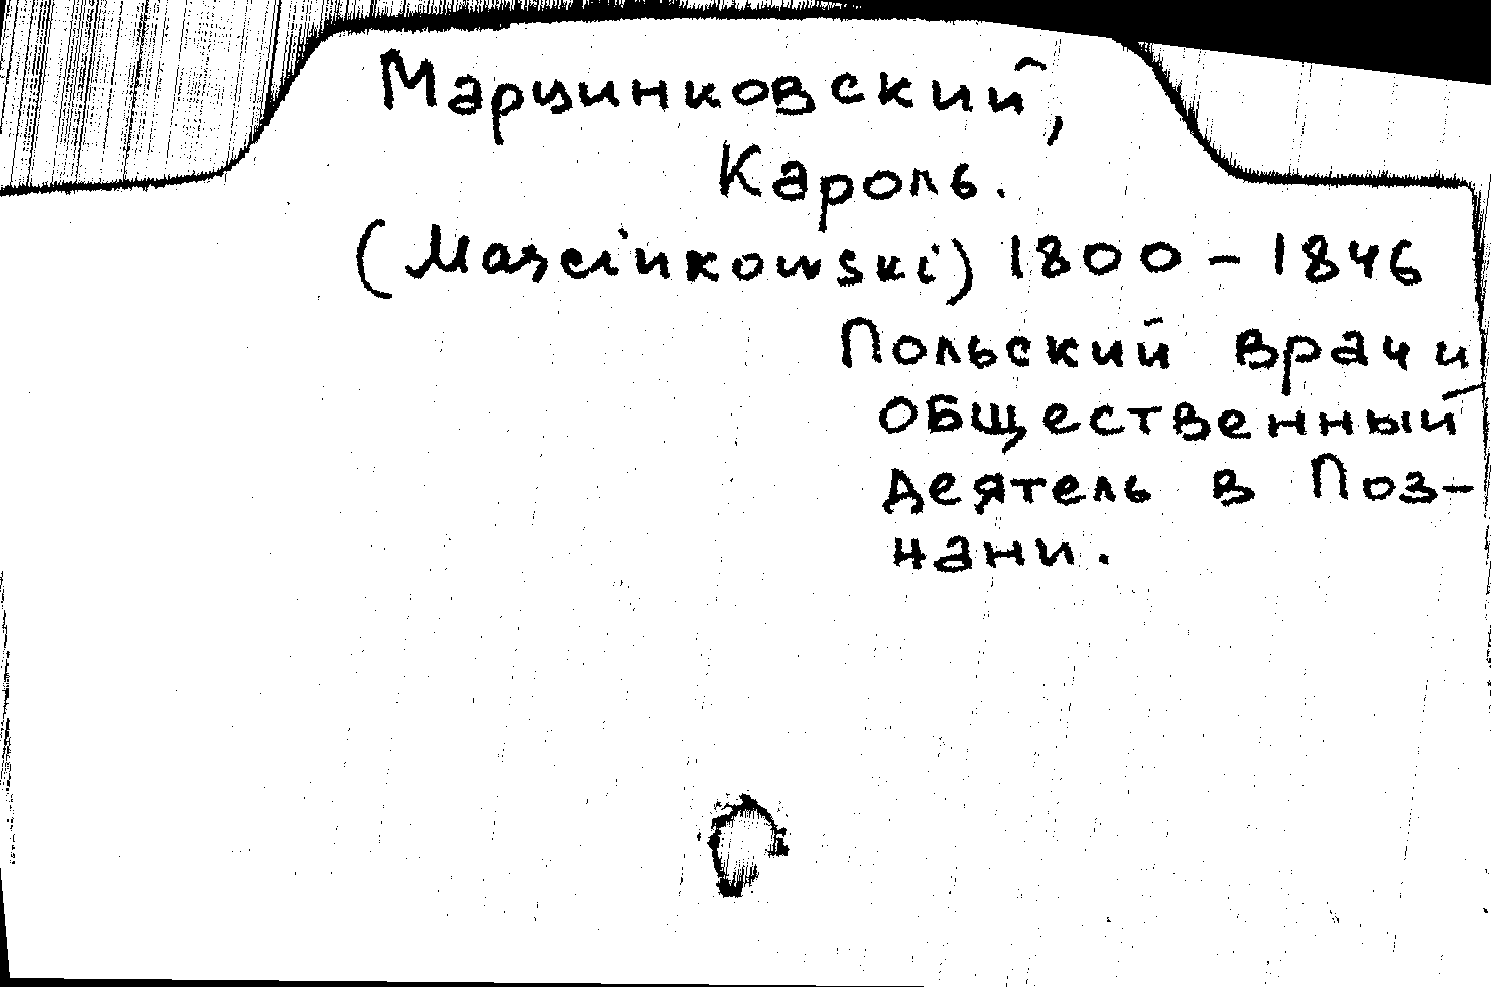 Марцинковский,
Кароль.
(Marcinkowski) 1800 - 1846
Польский врач и
общественный
деятель в Поз-
нани.